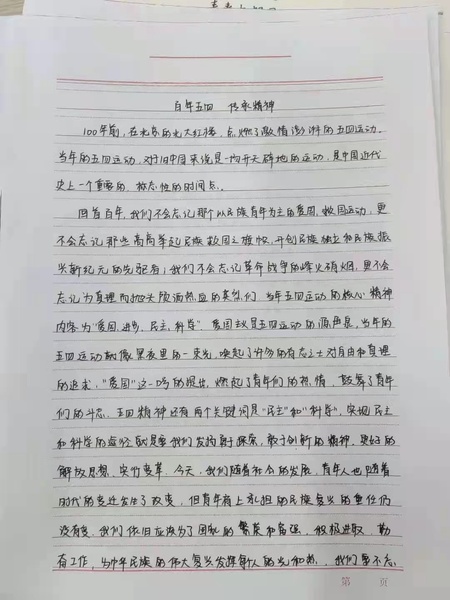 百年五四 传承精神
100年前,在北京的北大红楼,点燃了激情澎湃的五四运动。
当年的五四运动,对旧中国来说是一向开天辟地的运动,是中国近代
史上一个重要的、标志性的时间点。
回首百年,我们不会忘记那个以民族青年为主的爱国、救国运动,更
不会忘记那些高高举起民族救国之旗帜,开创民族独立和民族振
兴新纪元的先驱者;我们不会忘记革命战争的烽火硝烟,更不会
忘记为真理而抛头颅洒热血的英烈们。当年五四运动的核心精神
内容为“爱国、进步、民主、科学”。爱国主义是五四运动的源泉,当年的
五四运动就像黑夜里的一束光,唤起了许多的有志之士对自由和真理
的追求,“爱国”这一口号的提出,燃起了青年们的热情,鼓舞了青年
们的斗志。五四精神还有两个关键词是“民主”和“科学”,实现民主
和科学的途径就是要我们发扬勇于探索,敢于创新的精神,更好的
解放思想,实行变革。今天,我们随着社会的发展,青年人也随着
时代的变迁发生了改变,但青年肩上扛担的民族复兴的重任仍
没有变,我们依旧应该为了国家的繁荣和富强,积极进取,勤
奋工作,为中华民族的伟大复兴发挥新人的光和热。我们要不忘
第 页